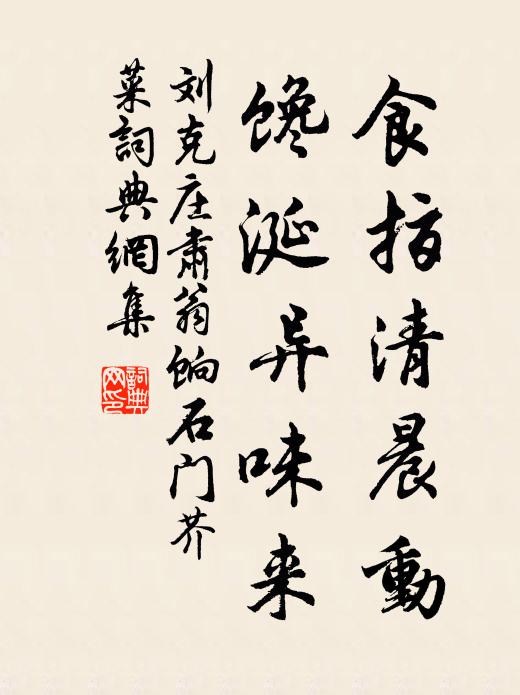 食指清晨動
馋涎异味来
刘克庄肃翁餉石门芥
菜詞典網集
詞典网印